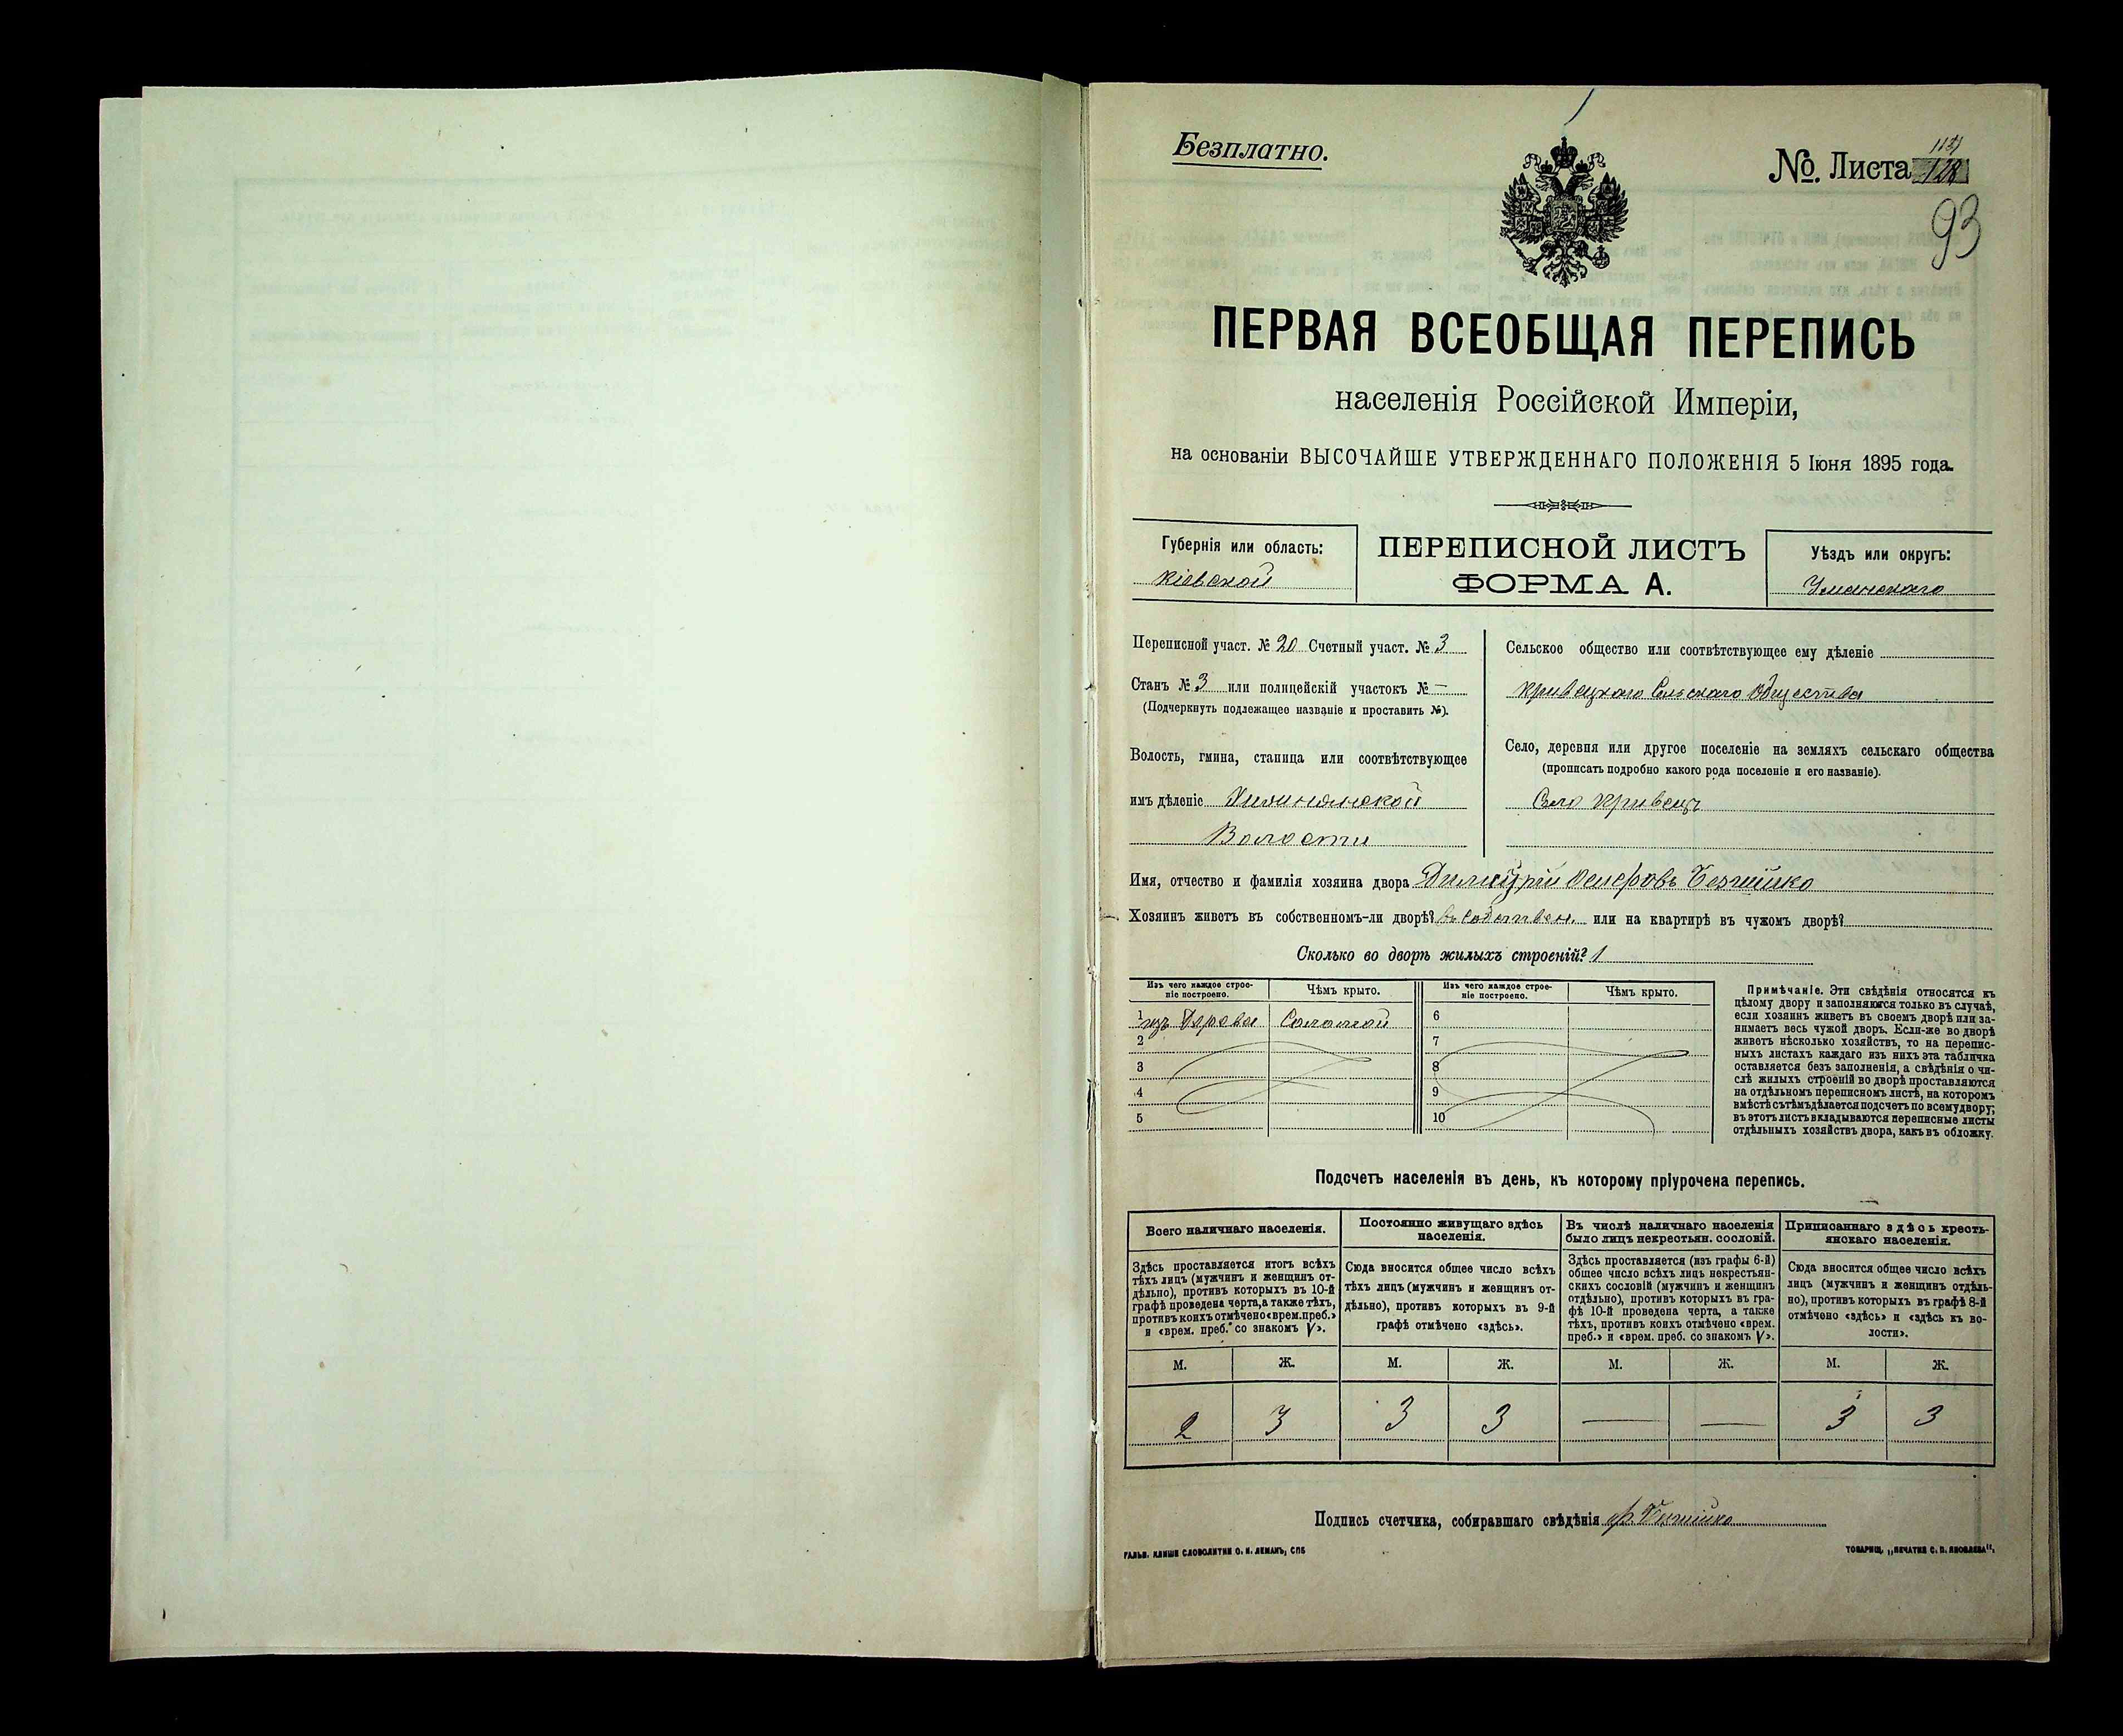 Безплатно.
№. Листа 128
93
ПЕРВАЯ ВСЕОБЩАЯ ПЕРЕПИСЬ
населенія Россійской Имперіи,
на основаніи ВЫСОЧАЙШЕ УТВЕРЖДЕННАГО ПОЛОЖЕНІЯ 5 Іюня 1895 года.
Губернія или область:
Кіевской
ПЕРЕПИСНОЙ ЛИСТЪ
ФОРМА А.
Уѣздъ или округъ:
Уманскаго
Переписной участ. № 20 Счетный участ. № 3
Станъ № 3 или полицейскій участокъ № —
(Подчеркнуть подлежащее названіе и проставить №).
Волость, гмина, станица или соотвѣтствующее
имъ дѣленіе
Волости
Сельское общество или соотвѣтствующее ему дѣленіе
Кривецкаго Сельскаго Общества
Село, деревня или другое поселеніе на земляхъ сельскаго общества
(прописать подробно какого рода поселеніе и его названіе).
Село Кривецъ
Имя, отчество и фамилія хозяина двора Димитрій Осифовъ
Хозяинъ живетъ въ собственномъ-ли дворѣ? въ собствен. или на квартирѣ въ чужомъ дворѣ?
Сколько во дворѣ жилыхъ строеній? 1
Изъ чего каждое строе-
ніе построено.
Чѣмъ крыто.
Изъ чего каждое строе-
ніе построено.
Чѣмъ крыто.
1 изъ Дерева Соломой 6
2 7
3 8
4 9
5 10
Примѣчаніе. Эти свѣдѣнія относятся къ
цѣлому двору и заполняются только въ случаѣ,
если хозяинъ живетъ въ своемъ дворѣ или за-
нимаетъ весь чужой дворъ. Если-же во дворѣ
живетъ нѣсколько хозяйствъ, то на перепис-
ныхъ листахъ каждаго изъ нихъ эта табличка
оставляется безъ заполненія, а свѣдѣнія о чи-
слѣ жилыхъ строеній во дворѣ проставляются
на отдѣльномъ переписномъ листѣ, на которомъ
вмѣстѣ съ тѣмъ дѣлается подсчетъ по всему двору;
въ этотъ листъ вкладываются переписные листы
отдѣльныхъ хозяйствъ двора, какъ въ обложку.
Подсчетъ населенія въ день, къ которому пріурочена перепись.
Всего наличнаго населенія.
Здѣсь проставляется итогъ всѣхъ
тѣхъ лицъ (мужчинъ и женщинъ от-
дѣльно), противъ которыхъ въ 10-й
графѣ проведена черта, а также тѣхъ,
противъ коихъ отмѣчено «врем. преб.»
и «врем. преб.» со знакомъ V».
Постоянно живущаго здѣсь
населенія.
Сюда вносится общее число всѣхъ
тѣхъ лицъ (мужчинъ и женщинъ от-
дѣльно), противъ которыхъ въ 9-й
графѣ отмѣчено «здѣсь».
Въ числѣ наличнаго населенія
было лицъ некрестьян. сословій.
Здѣсь проставляется (изъ графы 6-й)
общее число всѣхъ лицъ некрестьян-
скихъ сословій (мужчинъ и женщинъ
отдѣльно), противъ которыхъ въ гра-
фѣ 10-й проведена черта, а также
тѣхъ, противъ коихъ отмѣчено «врем.
преб.» и «врем. преб. со знакомъ V».
Приписаннаго здѣсь кресть-
янскаго населенія.
Сюда вносится общее число всѣхъ
лицъ (мужчинъ и женщинъ отдѣль-
но), противъ которыхъ въ графѣ 8-й
отмѣчено «здѣсь» и «здѣсь къ во-
лости».
М. Ж. М. Ж. М. Ж. М. Ж.
2 3 3 3 — — 3 3
Подпись счетчика, собиравшаго свѣдѣнія
ГАЛЬВ. КЛИШЕ СЛОВОЛИТНИ О. И. ЛЕМАНЪ, СПБ
ТОВАРИЩ. „ПЕЧАТНЯ С. П. ЯКОВЛЕВА“.